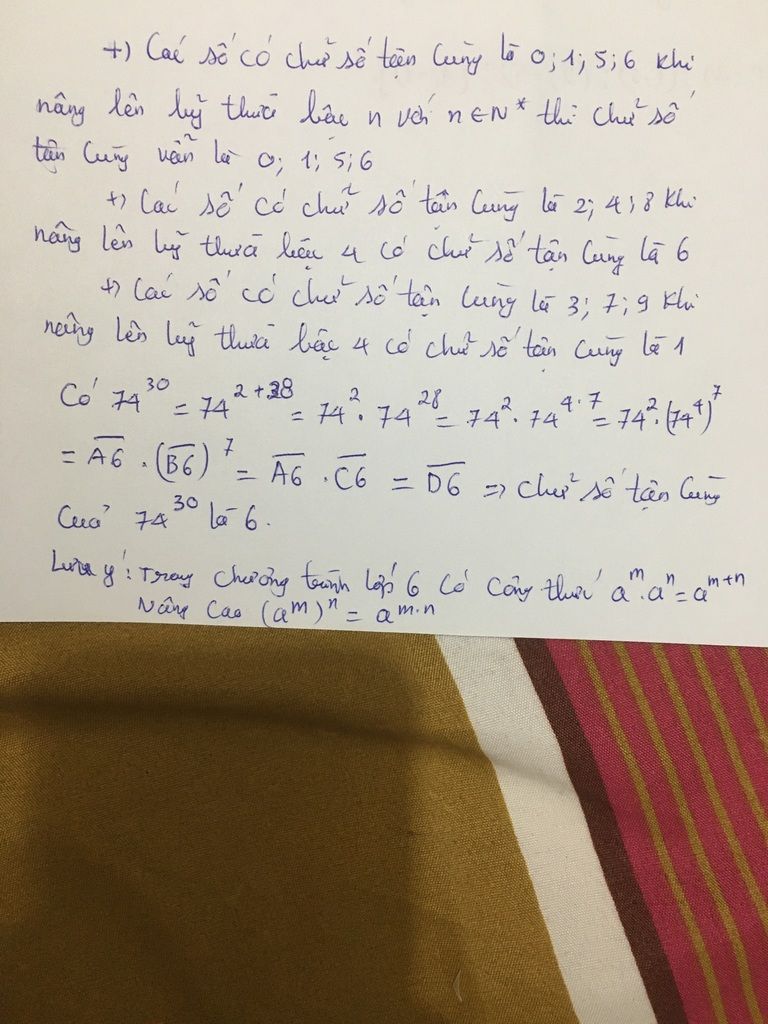 +) Các số có chữ số tận cùng là 0; 1; 5; 6 khi
nâng lên luỹ thừa bậc n với n ∈ N* thì chữ số
tận cùng vẫn là 0; 1; 5; 6
+) Các số có chữ số tận cùng là 2; 4; 8 khi
nâng lên luỹ thừa bậc 4 có chữ số tận cùng là 6
+) Các số có chữ số tận cùng là 3; 7; 9 khi
nâng lên luỹ thừa bậc 4 có chữ số tận cùng là 1
Có 74³⁰ = 74²⁺²⁸ = 74² . 74²⁸ = 74² . 74⁴·⁷ = 74² . (74⁴)⁷
= A̅6̅ . (B̅6̅)⁷ = A̅6̅ . C̅6̅ = D̅6̅ => chữ số tận cùng
của 74³⁰ là 6.
Lưu ý: Trong chương trình lớp 6 có công thức aᵐ.aⁿ = aᵐ⁺ⁿ
Nâng cao (aᵐ)ⁿ = aᵐ·ⁿ